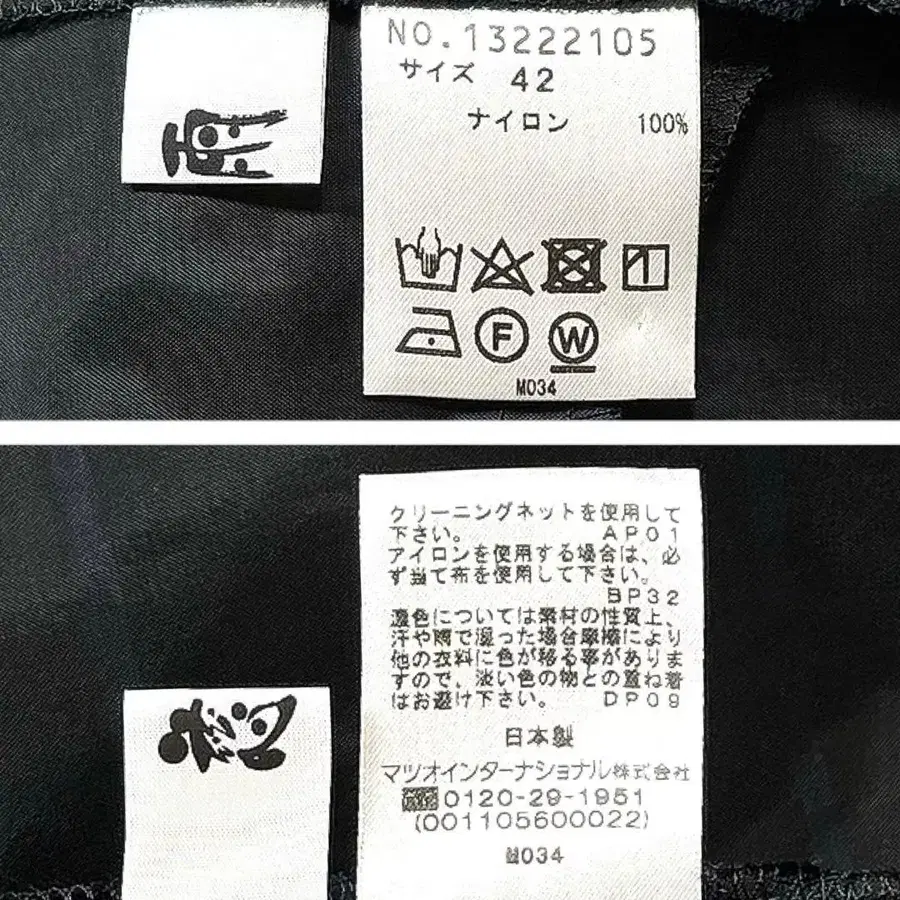 NO.13222105
サイズ 42
ナイロン 100%
F W
M034
クリーニングネットを使用して
下さい。 AP01
アイロンを使用する場合は、必
ず当て布を使用して下さい。
BP32
濃色については素材の性質上、
汗や雨で湿った場合摩擦により
他の衣料に色が移る事がありま
すので、淡い色の物との重ね着
はお避け下さい。 DP09
日本製
マツオインターナショナル株式会社
0120-29-1951
(001105600022)
M034